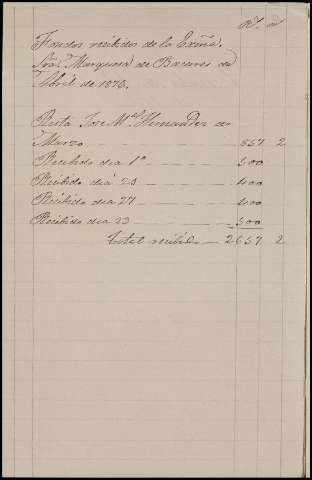 Fondos recibidos de la Exmã.
Srã. Marquesa de Bacares de
Abril de 1876.
Resta Jose Mª Hernandez de
Marzo 857 2
Recibido dia 1º 500
Recibido dia 23 400
Recibido dia 27 400
Recibido dia 29 500
Total recibido 2657 2